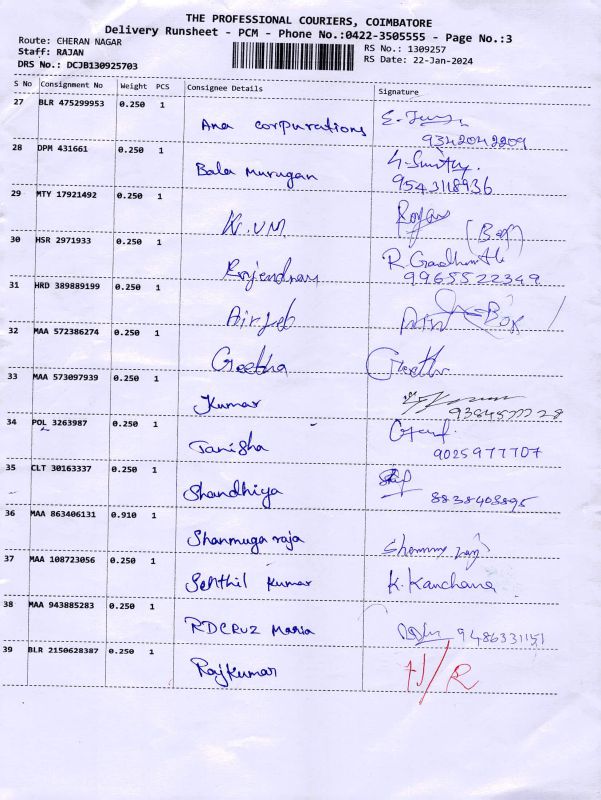 THE PROFESSIONAL COURIERS, COIMBATORE
Delivery Runsheet - PCM - Phone No.:0422-3505555 - Page No.:3
Route: CHERAN NAGAR
Staff: RAJAN
DRS No.: DCJB130925703
RS No.: 1309257
RS Date: 22-Jan-2024
S No Consignment No Weight PCS Consignee Details Signature
27 BLR 475299953 0.250 1 Ana corpurations
9342042209
28 DPM 431661 0.250 1 Bala Murugan
9543118936
29 MTY 17921492 0.250 1 K.VM
30 HSR 2971933 0.250 1 Rajendran R
9965522349
31 HRD 389889199 0.250 1
32 MAA 572386274 0.250 1 Geetha Geetha
33 MAA 573097939 0.250 1 Kumar
34 POL 3263987 0.250 1 Tanisha
9025977707
35 CLT 30163337 0.250 1 Shandhiya
8838403895
36 MAA 863406131 0.910 1 Shanmuga raja
37 MAA 108723056 0.250 1 Senthil Kumar K. Kanchana
38 MAA 943885283 0.250 1 RDCRUZ Maria
9486331151
39 BLR 2150628387 0.250 1 Rajkumar